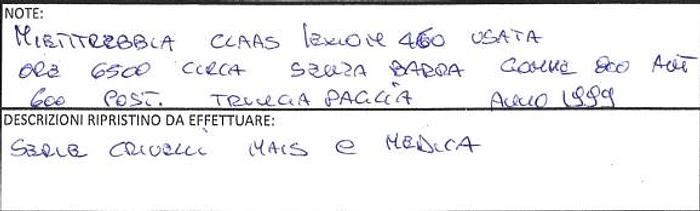 NOTE:
MIETITREBBIA CLAAS LEXION 460 USATA
ORE 6500 CIRCA SENZA BARRA GOMME 800 ANT
600 POST. TRINCIA PAGLIA ANNO 1999
DESCRIZIONI RIPRISTINO DA EFFETTUARE:
SERIE CRIVELLI MAIS E MEDICA